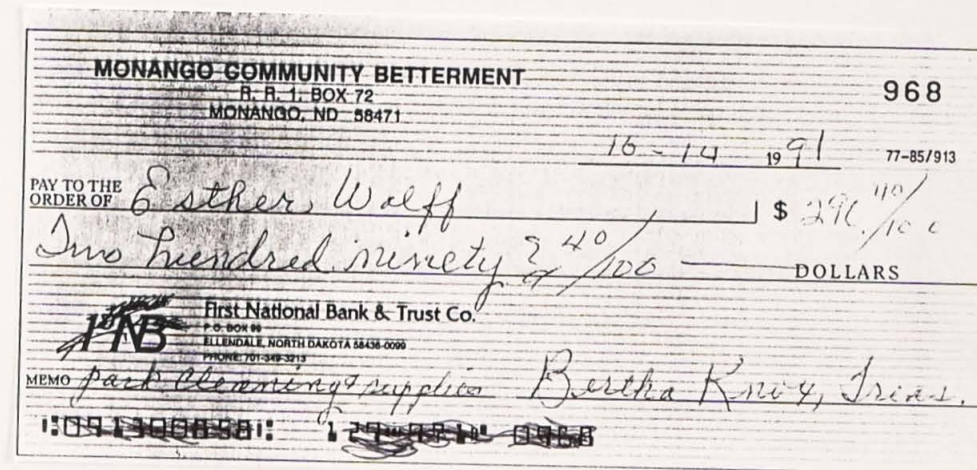 MONANGO COMMUNITY BETTERMENT
R. R. 1, BOX 72
MONANGO, ND 58471
968
10-14 1991
77-85/913
PAY TO THE ORDER OF Esther Wolff $ 290 40/100
Two hundred ninety & 40/100 DOLLARS
FNB First National Bank & Trust Co.
P.O. BOX 99
ELLENDALE, NORTH DAKOTA 58436-0099
PHONE: 701-349-3213
MEMO park cleaning & supplies Bertha Knox, Treas.
0968